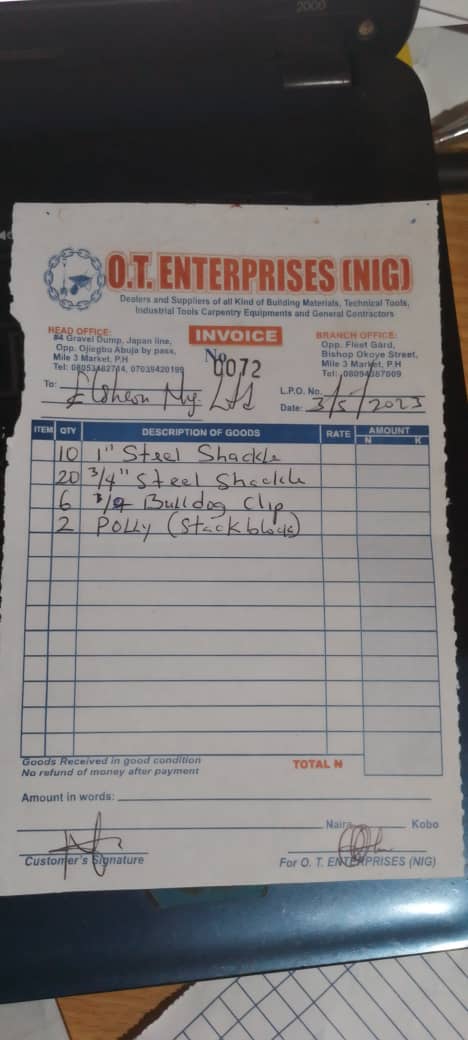 2000
O.T. ENTERPRISES (NIG)
Dealers and Suppliers of all Kind of Building Materials, Technical Tools,
Industrial Tools Carpentry Equipments and General Contractors
HEAD OFFICE:
#4 Gravel Dump, Japan line,
Opp. Ojiegbu Abuja by pass,
Mile 3 Market, P.H
Tel: 08053482744, 07039420199
INVOICE
No 0072
BRANCH OFFICE:
Opp. Fleet Gard,
Bishop Okoye Street,
Mile 3 Market, P.H
Tel: 08094387009
To: Nig. Ltd
L.P.O. No.
Date: 3/5/2023
ITEM QTY DESCRIPTION OF GOODS RATE AMOUNT
N K
10 1" Steel Shackle
20 3/4" Steel Shackle
6 Bulldog Clip
2 Polly (Stack blocks)
Goods Received in good condition
No refund of money after payment
TOTAL N
Amount in words:
Naira Kobo
Customer's Signature
For O. T. ENTERPRISES (NIG)